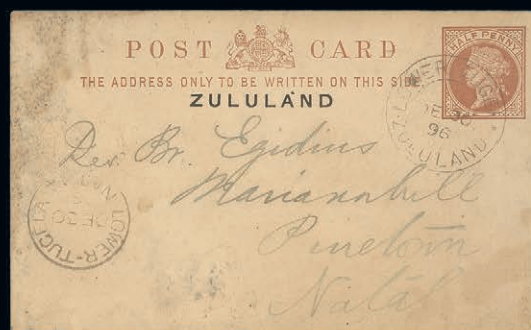 POST CARD
HALF PENNY
THE ADDRESS ONLY TO BE WRITTEN ON THIS SIDE.
ZULULAND
LOWER TUGELA
DE 30
96
ZULULAND
Rev. Br. Egidius
Mariannhill
Pinetown
Natal
LOWER-TUGELA
DE 30